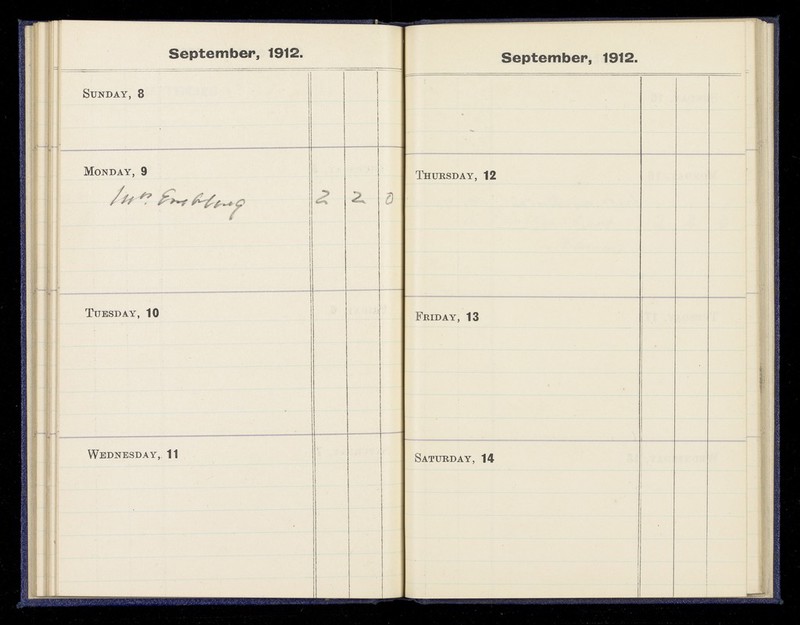 September, 1912.
SUNDAY, 8
MONDAY, 9
Mrs. 2 2 0
TUESDAY, 10
WEDNESDAY, 11
September, 1912.
THURSDAY, 12
FRIDAY, 13
SATURDAY, 14